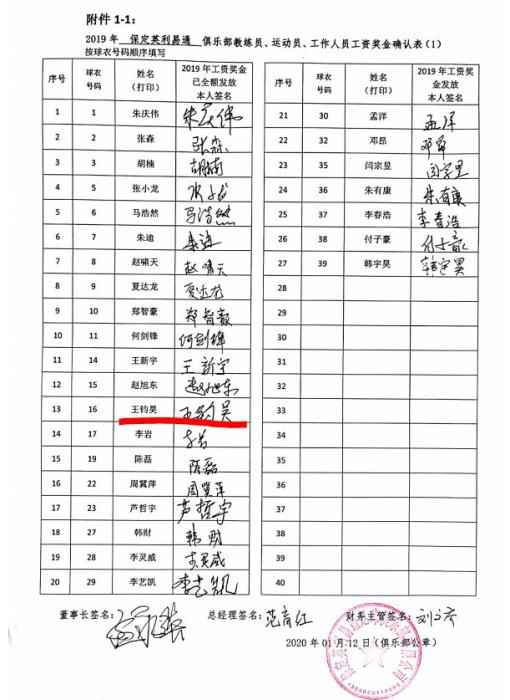 附件 1-1:
2019 年 保定英利易通 俱乐部教练员、运动员、工作人员工资奖金确认表(1)
按球衣号码顺序填写
序号 球衣号码 姓名(打印) 2019 年工资奖金已全额发放本人签名
1 1 朱庆伟 朱庆伟
2 2 张森 张淼
3 3 胡楠 胡楠
4 5 张小龙
5 6 马浩然 马浩然
6 7 朱迪 朱迪
7 8 赵啸天 赵啸天
8 9 夏达龙 夏达龙
9 10 郑智豪 郑智豪
10 11 何剑锋 何剑锋
11 14 王新宇 王新宇
12 15 赵旭东 赵旭东
13 16 王钧昊 王钧昊
14 17 李岩 李岩
15 19 陈磊 陈磊
16 22 周冀萍 周冀萍
17 23 芦哲宇 芦哲宇
18 27 韩财 韩财
19 28 李灵威 李灵威
20 29 李艺凯 李艺凯
序号 球衣号码 姓名(打印) 2019 年工资奖金发放本人签名
21 30 孟洋 孟洋
22 32 邓昂 邓昂
23 35 闫宗昱 闫宗昱
24 36 朱有康 朱有康
25 37 李春浩 李春浩
26 38 付子豪 付子豪
27 39 韩宇昊 韩宇昊
28
29
30
31
32
33
34
35
36
37
38
39
40
董事长签名: 总经理签名: 范育红 财务主管签名:
2020 年 01 月 12 日(俱乐部公章)